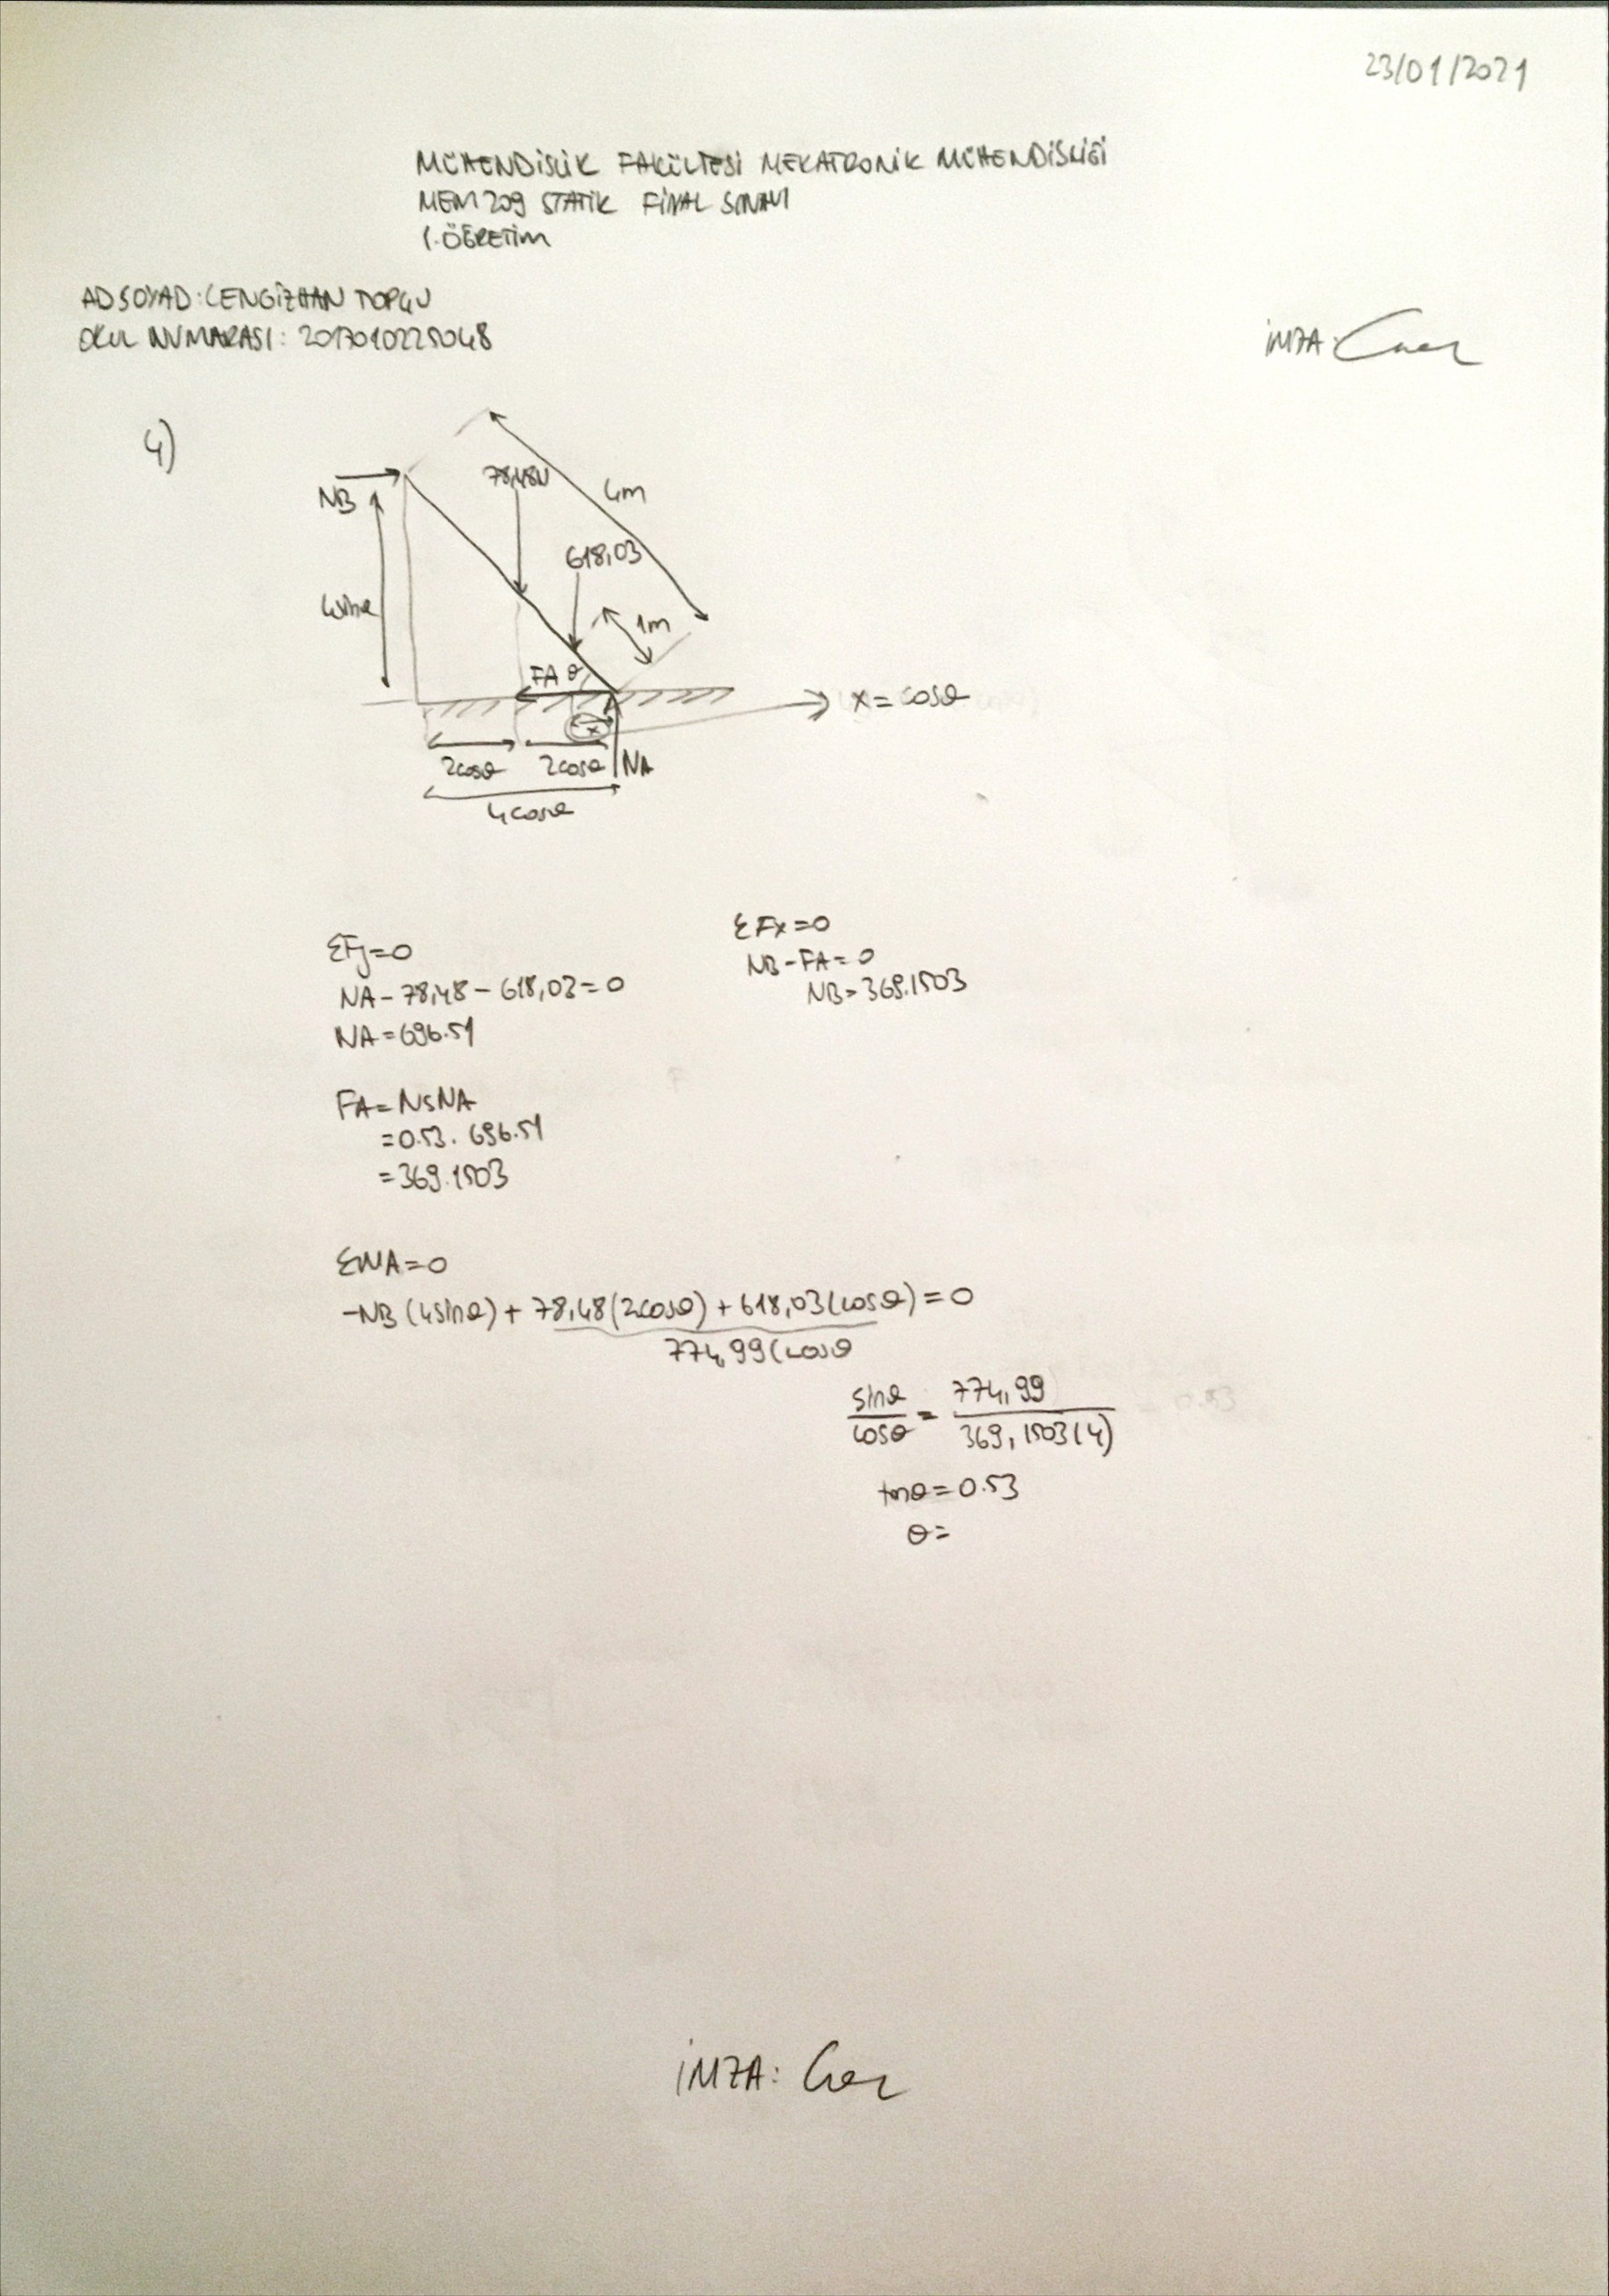 23/01/2021
MÜHENDİSLİK FAKÜLTESİ MEKATRONİK MÜHENDİSLİĞİ
MEM209 STATİK FİNAL SINAVI
1.ÖĞRETİM
AD SOYAD: CENGİZHAN TOPÇU
OKUL NUMARASI: 2017010225048
İMZA:
4)
NB
78,48N
4m
618,03
4sinθ
1m
FA θ
x
x = cosθ
2cosθ 2cosθ NA
4cosθ
ΣFy=0
NA - 78,48 - 618,03 = 0
NA = 696.51
ΣFx=0
NB - FA = 0
NB = 369.1503
FA = NsNA
= 0.53. 696.51
= 369.1503
ΣMA=0
-NB (4sinθ) + 78,48(2cosθ) + 618,03(cosθ) = 0
774,99(cosθ
sinθ/cosθ = 774,99/369,1503(4)
tanθ = 0.53
θ =
İMZA: